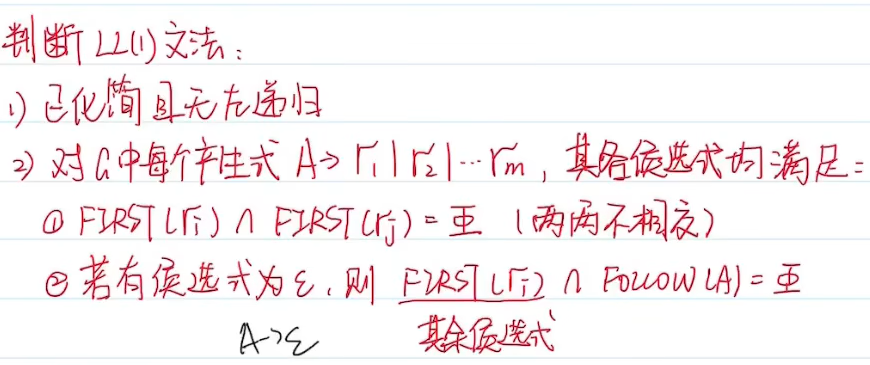 判断 LL(1)文法：
1) 已化简且无左递归
2) 对G中每个产生式 A→r₁|r₂|…rₘ，其各侯选式均满足：
① FIRST(rᵢ) ∩ FIRST(rⱼ) = Φ （两两不相交）
② 若有侯选式为ε，则 FIRST(rᵢ) ∩ FOLLOW(A) = Φ
A→ε 其余侯选式